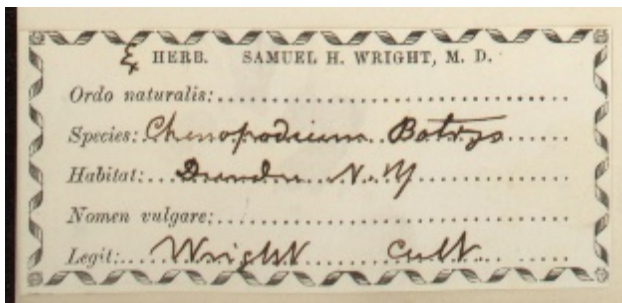 & HERB. SAMUEL H. WRIGHT, M. D.
Ordo naturalis:
Species: Chenopodium Botrys
Habitat: Dundee N.Y
Nomen vulgare:
Legit: Wright Cult.